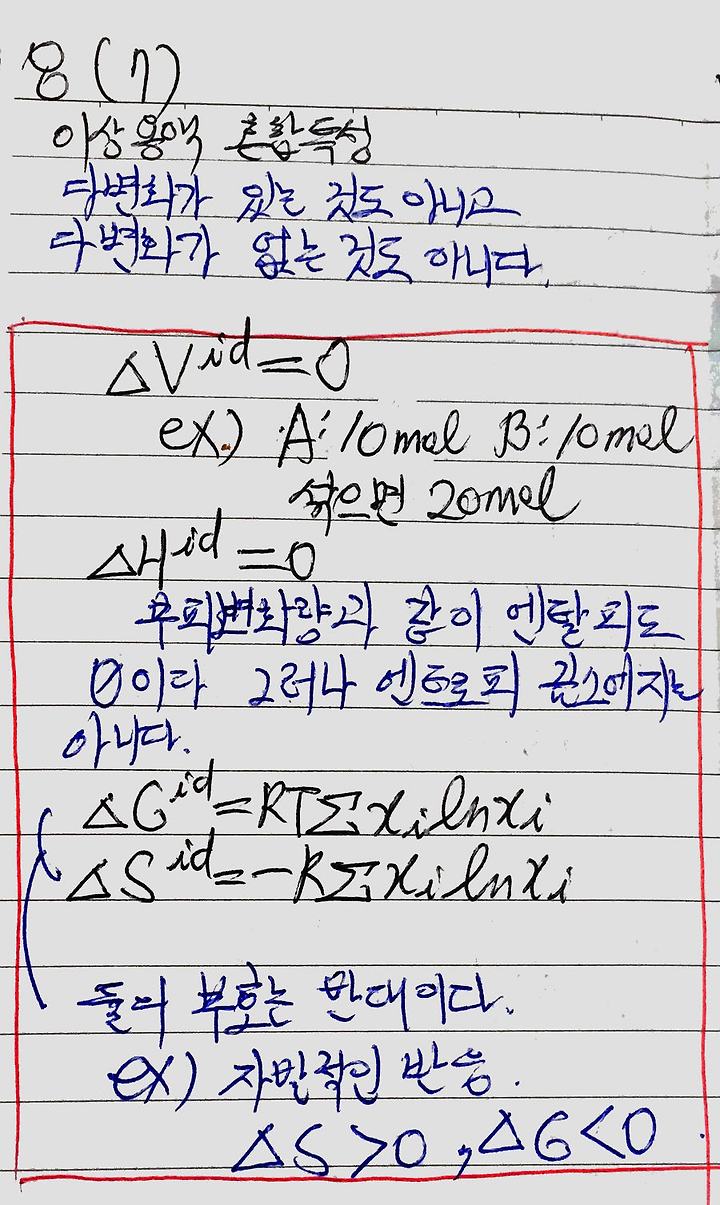 용(7)
이상용액 혼합특성
다변화가 있는 것도 아니고
다변화가 없는 것도 아니다.
ΔV^id=0
ex.) A: 10mol B: 10mol
섞으면 20mol
ΔH^id=0
부피변화량과 같이 엔탈피도
0이다 그러나 엔트로피 깁스에지는
아니다.
ΔG^id=RTΣxilnxi
ΔS^id=-RΣxilnxi
둘의 부호는 반대이다.
ex) 자발적인 반응.
ΔS>0, ΔG<0